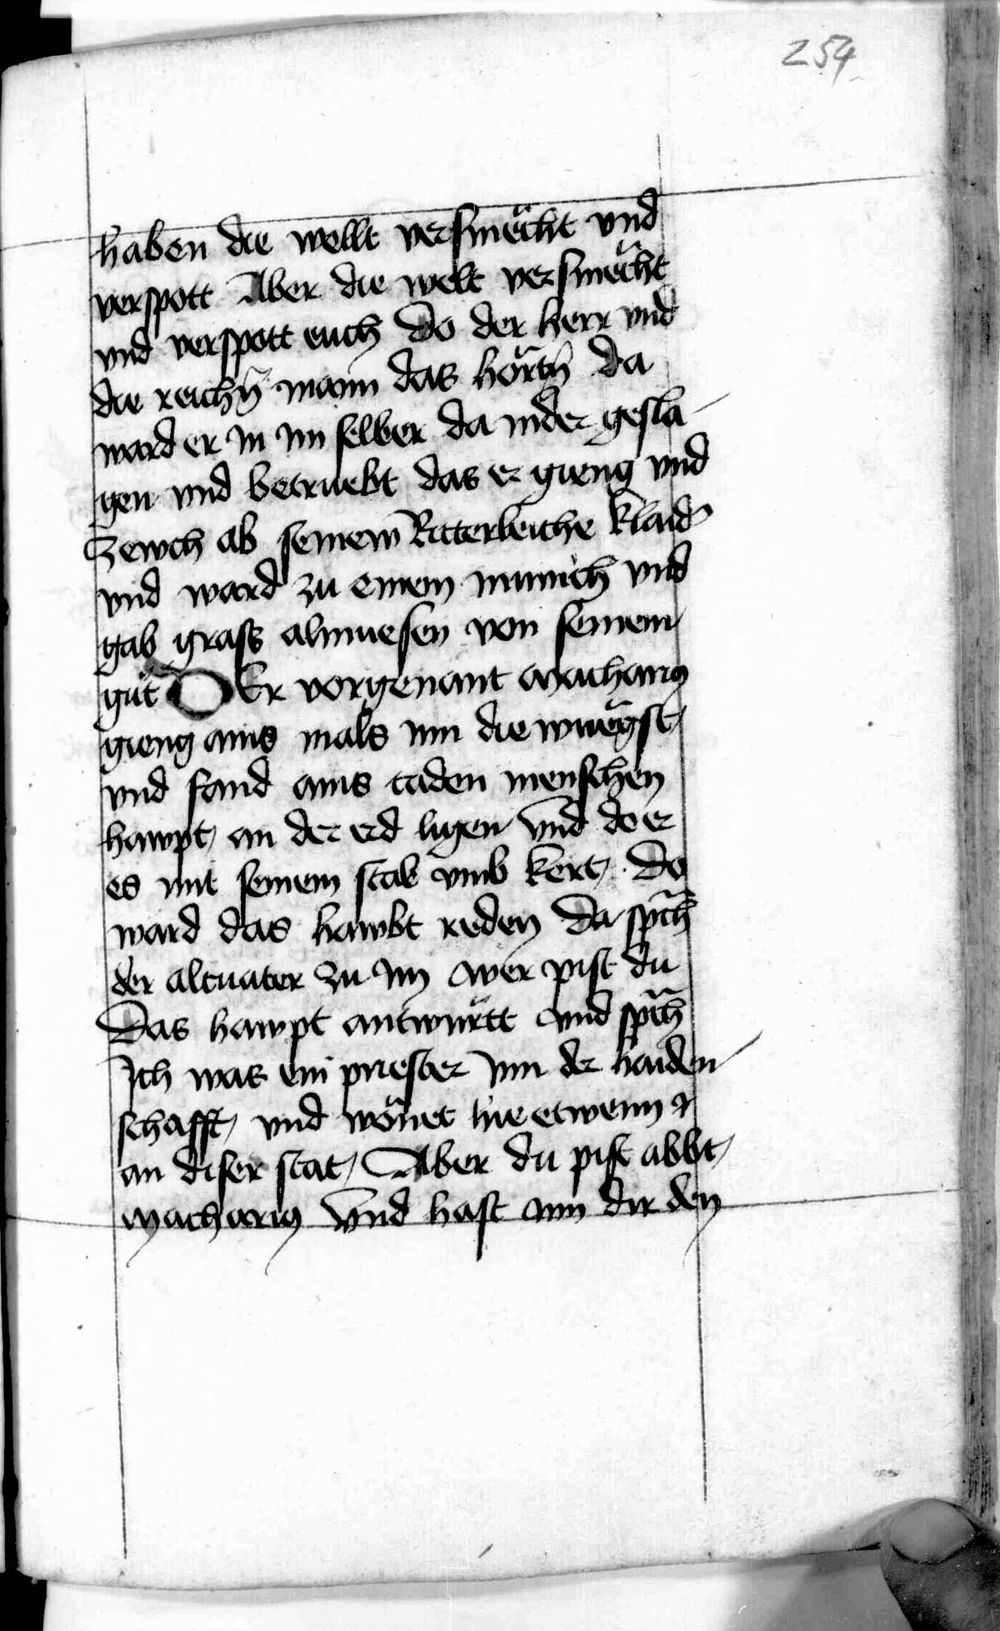 254
haben die wellt versmächt vnd
verspott Aber die welt versmächt
vnd verspott euch Do der herr vnd
die reichn̄ mann das hörtn̄ da
ward er in im selber da nider gesla
gen vnd betruebt das er gieng vnd
zewch ab seinew Ritterleiche klaid
vnd ward zu einem munich vnd
gab grass almuesen von seinem
gut DEr vorgenant Macharius
gieng ains mals inn die wuegst
vnd fand ains taden menschen
hawpt an der erd ligen vnd do er
es mit seinem stab vmb kert Do
ward das hawbt reden Da sp̄ch
der altuater zu im wer pist du
Das hawpt antwürtt vnd sp̄ch
Ich was ein priester inn der haiden
schafft vnd wonet hie etwenn
an diser stat Aber du pist abbt
Macharius Vnd hast inn dir den